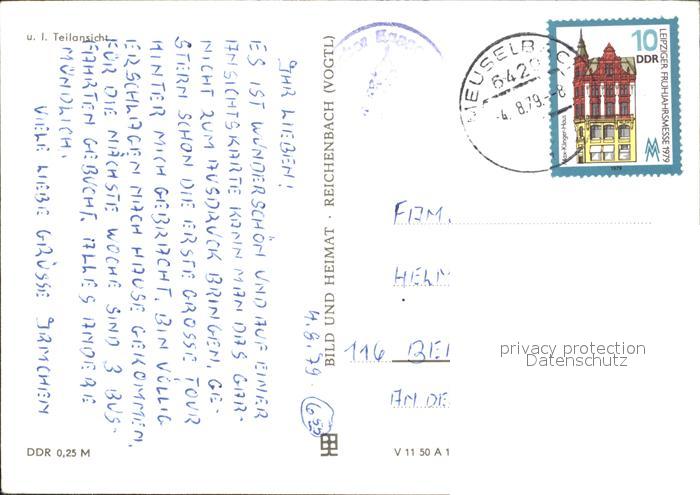 u. l. Teilansicht
IHR LIEBEN!
ES IST WUNDERSCHÖN UND AUF EINER
ANSICHTSKARTE KANN MAN DAS GAR-
NICHT ZUM AUSDRUCK BRINGEN. GE-
STERN SCHON DIE ERSTE GROSSE TOUR
HINTER MICH GEBRACHT. BIN VÖLLIG
ERSCHLAGEN NACH HAUSE GEKOMMEN.
FÜR DIE NÄCHSTE WOCHE SIND 3 BUS-
FAHRTEN GEBUCHT. ALLES ANDERE
MÜNDLICH.
VIELE LIEBE GRÜSSE IRMCHEN
4.8.79.
BILD UND HEIMAT · REICHENBACH (VOGTL)
MEUSELBACH
6420
-4.8.79.-8
10
DDR
LEIPZIGER FRÜHJAHRSMESSE 1979
Max-Klinger-Haus
1979
FAM.
HELM
116 BE
AN DE
privacy protection
Datenschutz
DDR 0,25 M
V 11 50 A 1